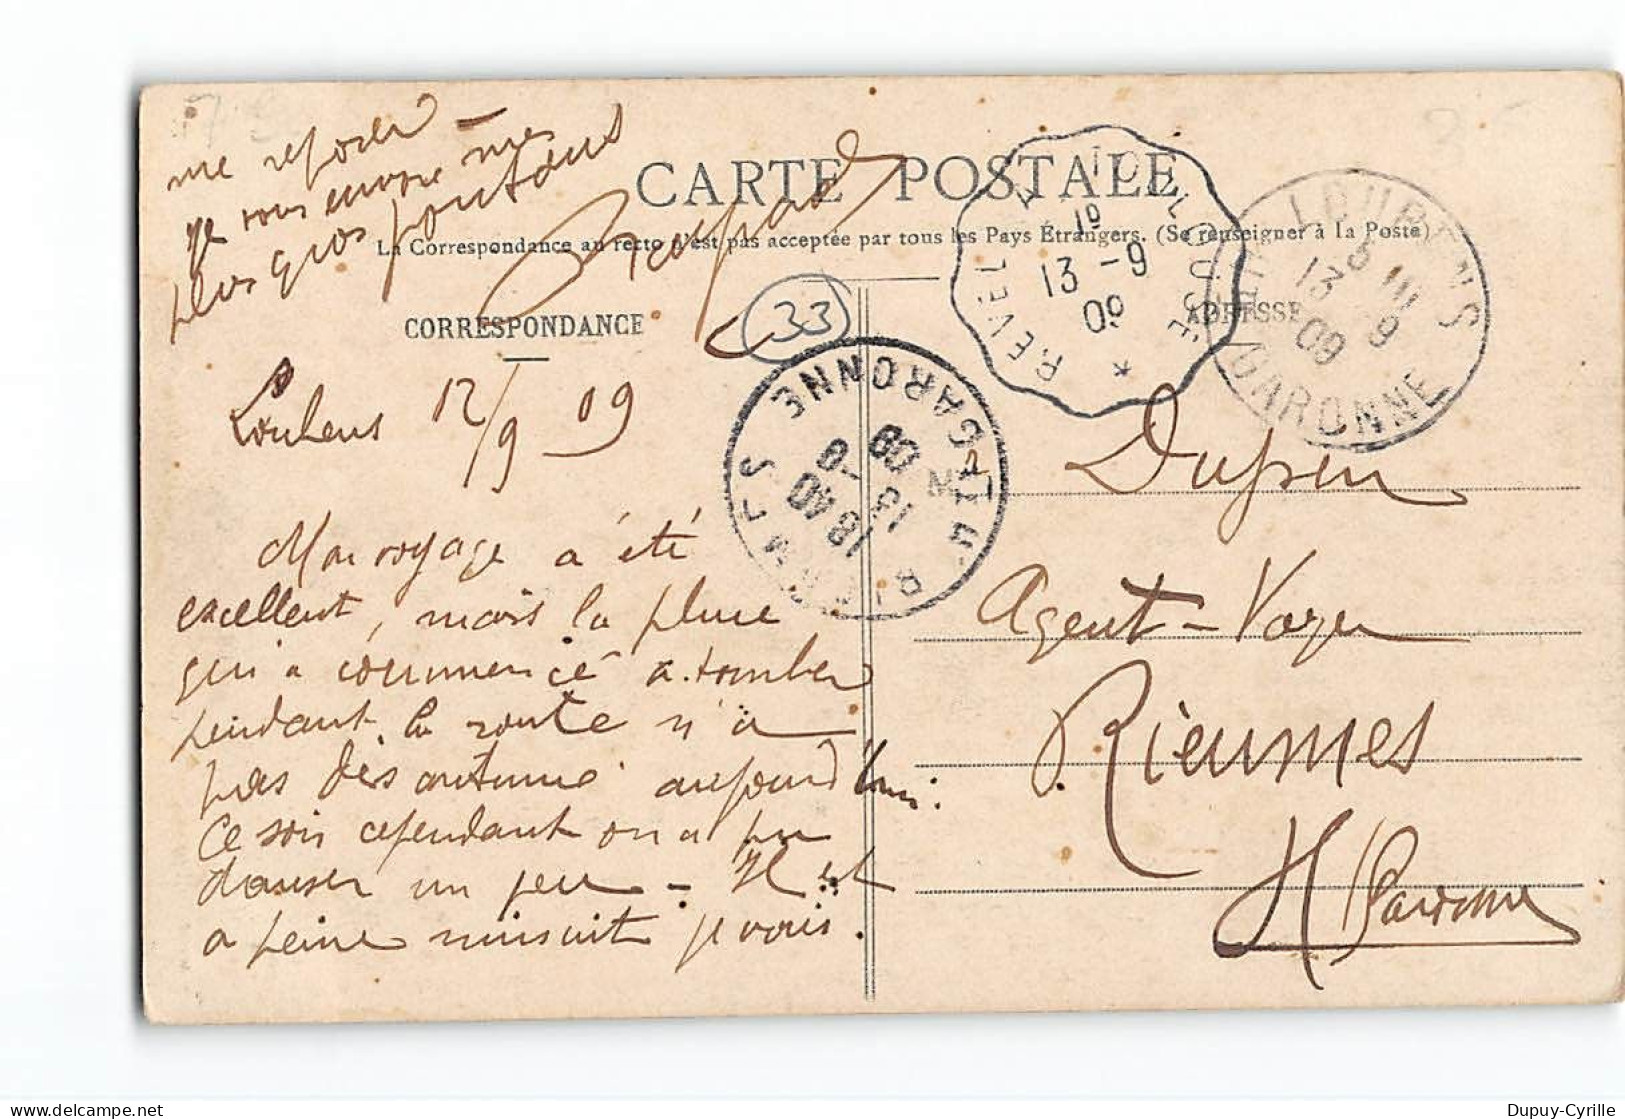 me reposer
je vous envoie mes
plus gros
CARTE POSTALE
La Correspondance au recto n'est pas acceptée par tous les Pays Étrangers. (Se renseigner à la Poste)
CORRESPONDANCE
ADRESSE
33
REVEL A TOULOUSE
1º
13 -9
09
LOUBENS
13 9
09
GARONNE
RIEUMES
Hte GARONNE
18 40
13 -9
09
Loubens 12/9 09
Mon voyage a été
excellent, mais la pluie
qui a commencé a tomber
pendant la route n'a
pas discontinué aujourd'hui.
Ce soir cependant on a pu
danser un peu - Il est
a peine minuit je vais.
Dupin
Agent-Voyer
Rieumes
H Garonne
Dupuy-Cyrille